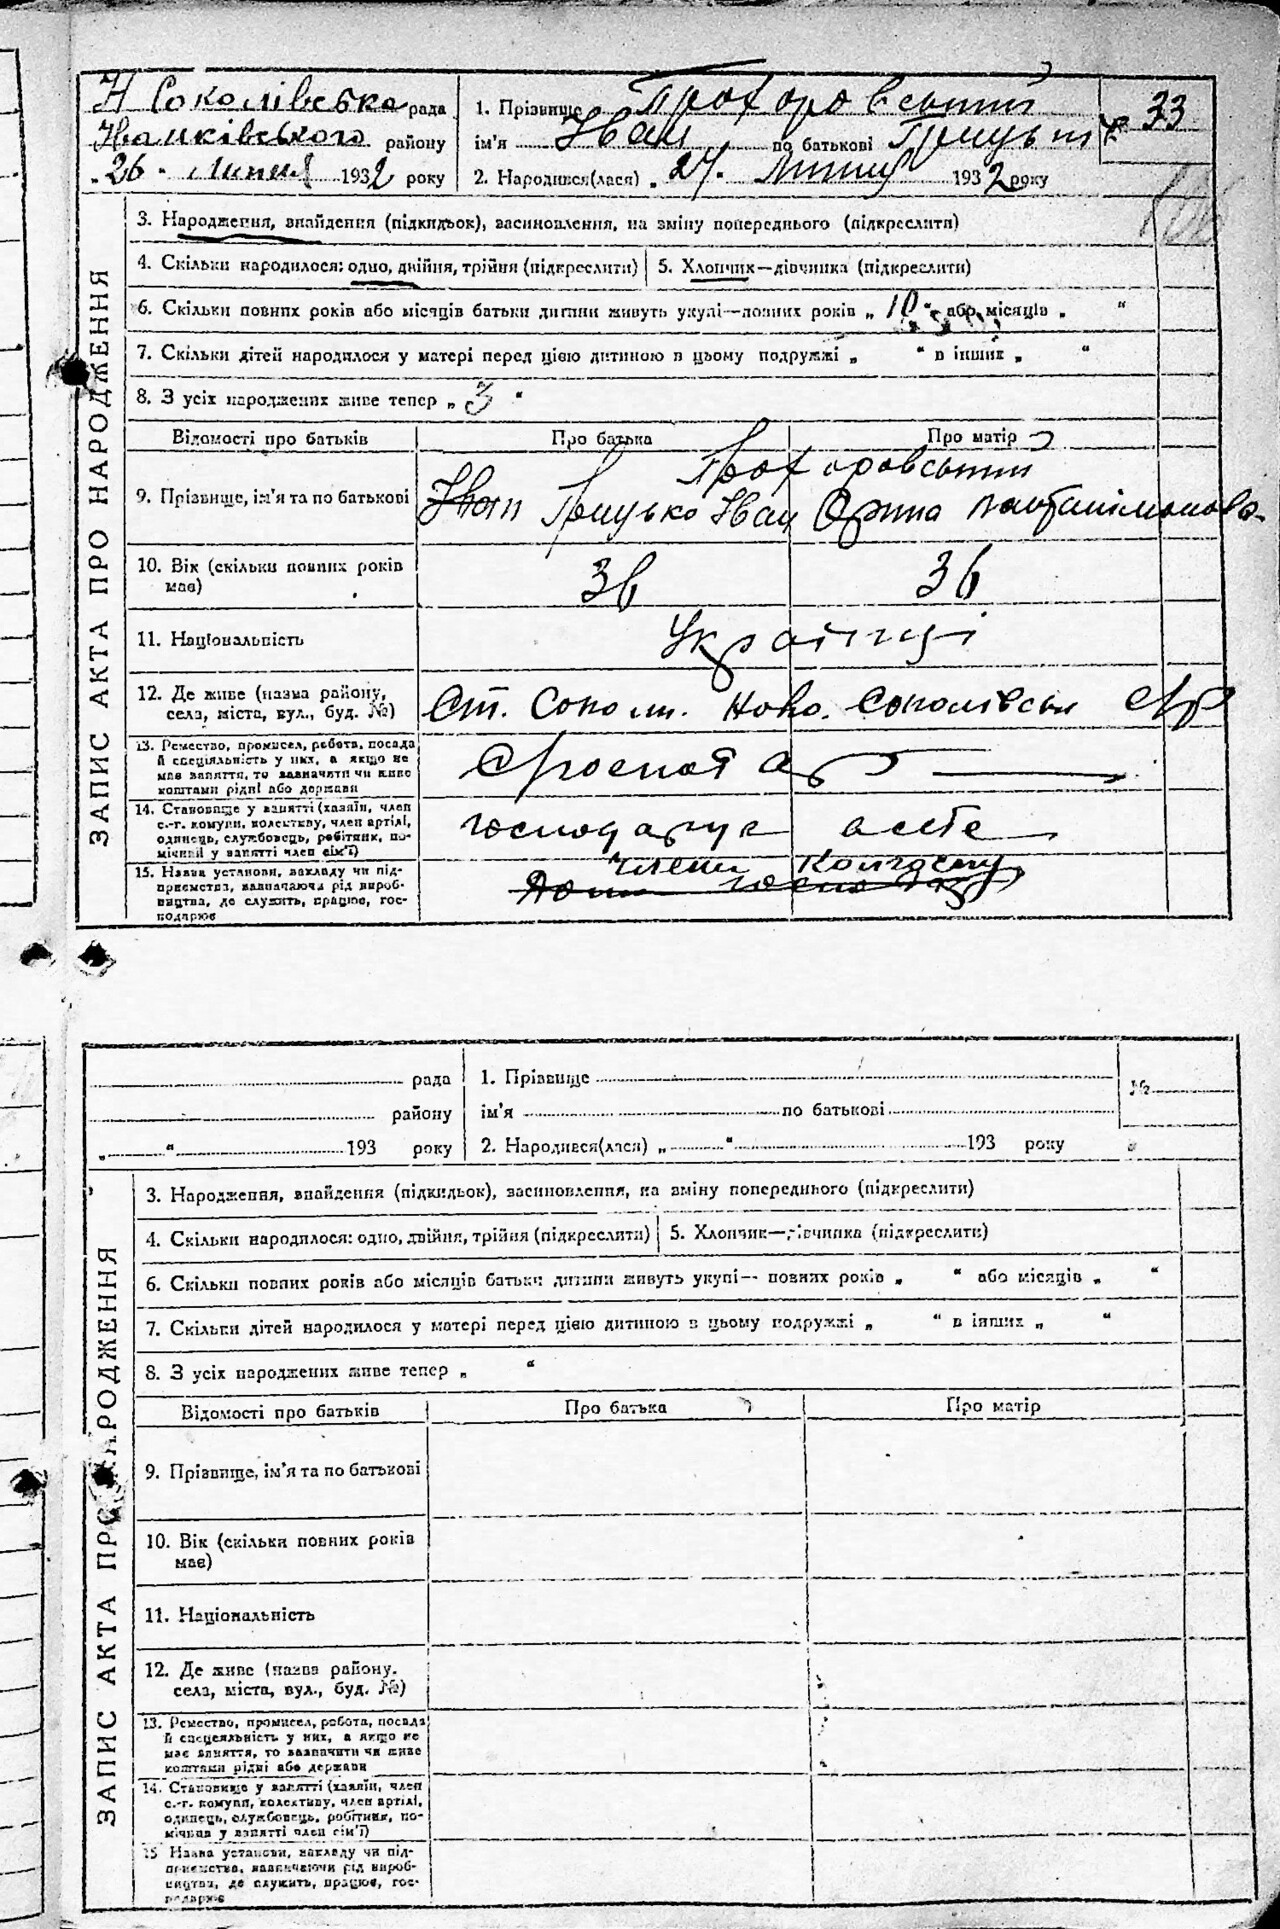 Н Соколівська рада
Іванківського району
„26“ липня 1932 року
1. Прізвище Прохоровський
ім'я Іван по батькові Грицьк
2. Народився(лася) „ 24. липня 1932 року
№ 33
ЗАПИС АКТА ПРО НАРОДЖЕННЯ
3. Народження, знайдення (підкидьок), засиновлення, на зміну попереднього (підкреслити)
4. Скільки народилося: одно, двійня, трійня (підкреслити) 5. Хлопчик—дівчинка (підкреслити)
6. Скільки повних років або місяців батьки дитини живуть укупі—повних років „ 10 “ або місяців „ “
7. Скільки дітей народилося у матері перед цією дитиною в цьому подружжі „ “ в інших „ “
8. З усіх народжених живе тепер „ 3 “
Відомості про батьків Про батька Про матір
Прохоровський
9. Прізвище, ім'я та по батькові Іван Грицько Іван Орина
10. Вік (скільки повних років має) 36 36
11. Національність Українці
12. Де живе (назва району, села, міста, вул., буд. №) Ст. Соколи. Ново. Соколівськ с/р
13. Ремество, промисел, робота, посада
й спеціяльність у них, а якщо не
має заняття, то зазначити чи живе
коштами рідні або держави
14. Становище у занятті (хазяїн, член
с.-г. комуни, колективу, член артілі,
одинець, службовець, робітник, по-
мічний у занятті член сім'ї)
члени колгоспу
15. Назва установи, закладу чи під-
приємства, зазначаючи рід вироб-
ництва, де служить, працює, гос-
подарює
рада
району
„ “ 193 року
1. Прізвище
ім'я по батькові
2. Народився(лася) „ “ 193 року
№
ЗАПИС АКТА ПРО НАРОДЖЕННЯ
3. Народження, знайдення (підкидьок), засиновлення, на зміну попереднього (підкреслити)
4. Скільки народилося: одно, двійня, трійня (підкреслити) 5. Хлопчик—дівчинка (підкреслити)
6. Скільки повних років або місяців батьки дитини живуть укупі— повних років „ “ або місяців „ “
7. Скільки дітей народилося у матері перед цією дитиною в цьому подружжі „ “ в інших „ “
8. З усіх народжених живе тепер „ “
Відомості про батьків Про батька Про матір
9. Прізвище, ім'я та по батькові
10. Вік (скільки повних років
має)
11. Національність
12. Де живе (назва району,
села, міста, вул., буд. №)
13. Ремество, промисел, робота, посада
й спеціяльність у них, а якщо не
має заняття, то зазначити чи живе
коштами рідні або держави
14. Становище у занятті (хазяїн, член
с.-г. комуни, колективу, член артілі,
одинець, службовець, робітник, по-
мічний у занятті член сім'ї)
15 Назва установи, закладу чи під-
приємства, зазначаючи рід вироб-
ництва, де служить, працює, гос-
подарює